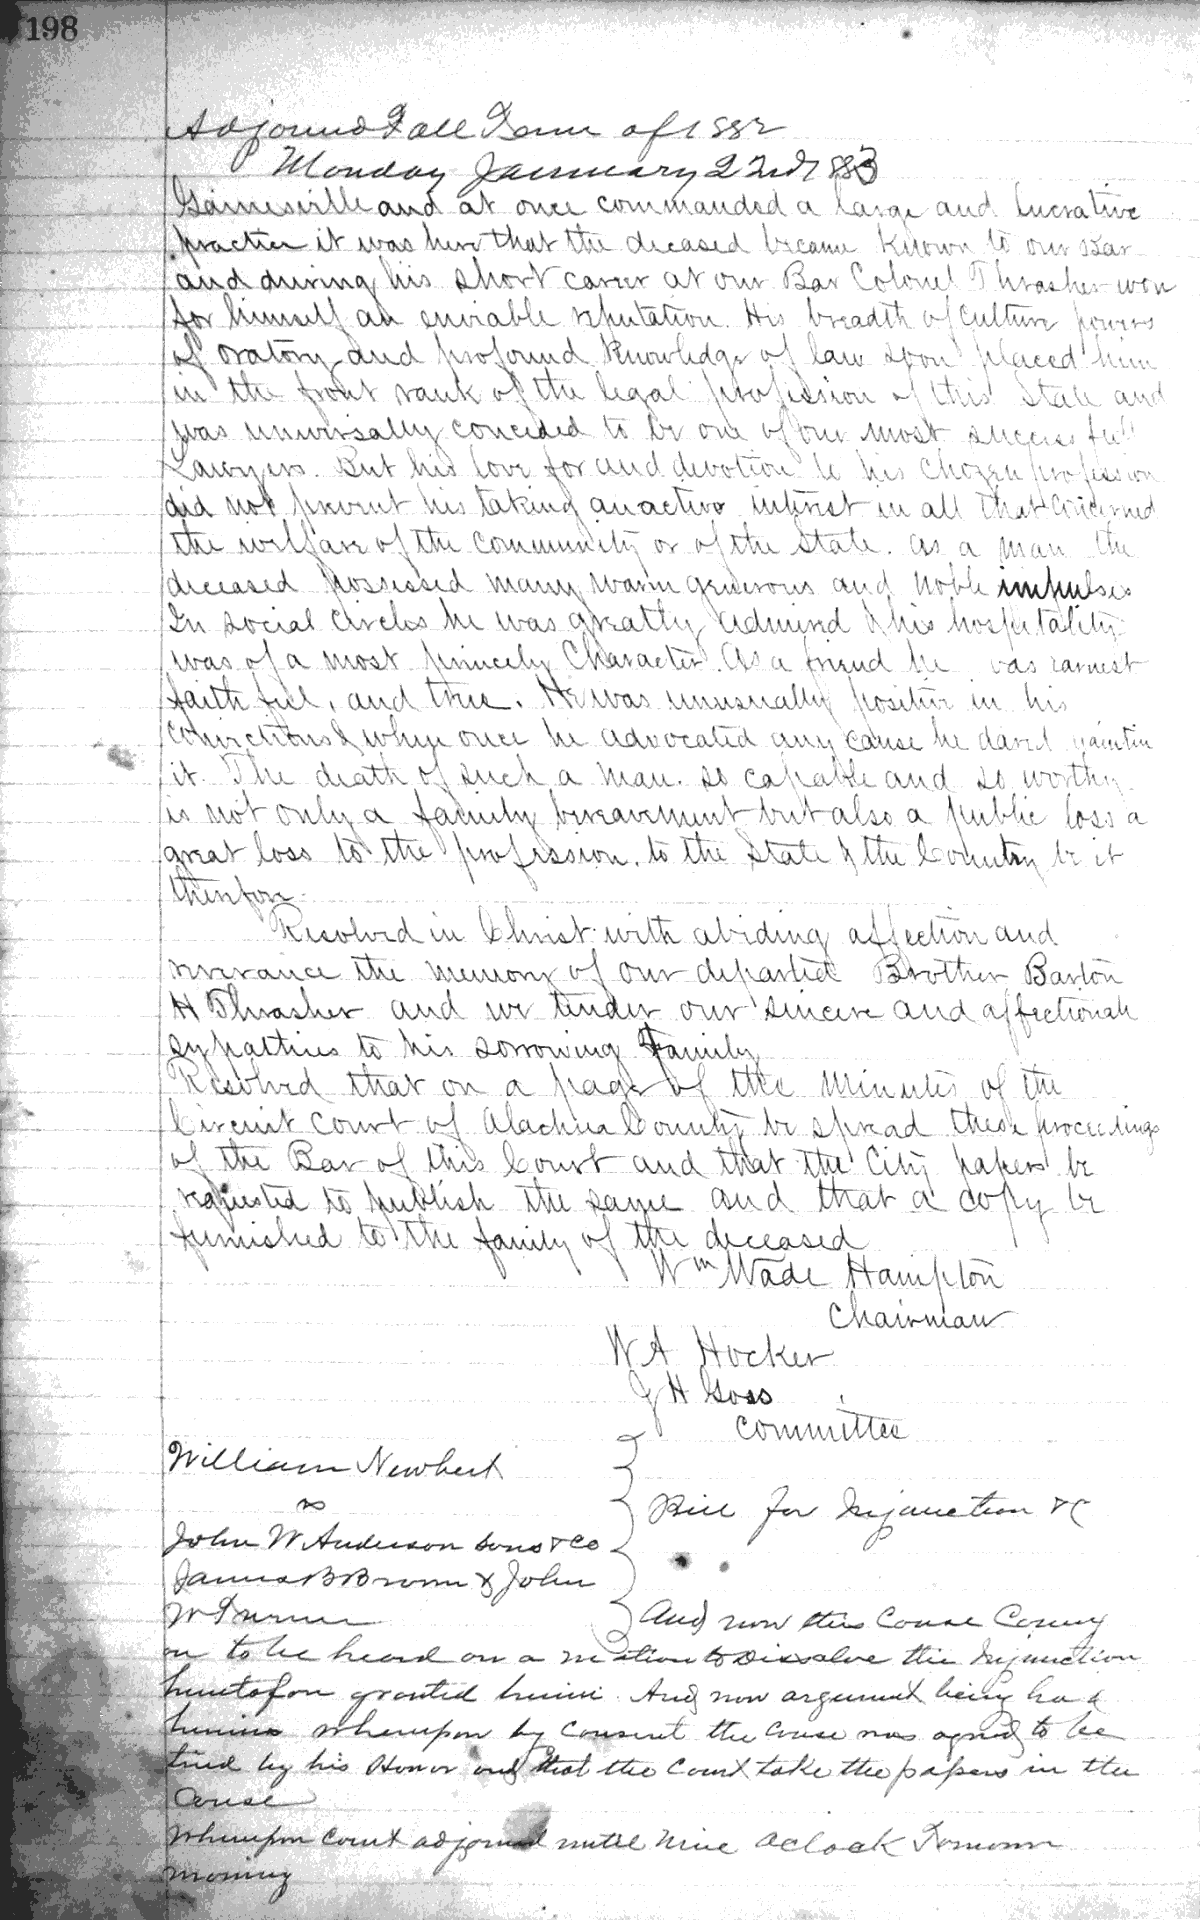 198
Adjourned Fall Term of 1882
Monday January 22nd 1883
Gainesville and at once commanded a large and lucrative
practice it was here that the deceased became known to our Bar
and during his short career at our Bar Colonel Thrasher won
for himself an enviable reputation. His breadth of culture powers
of oratory and profound knowledge of law soon placed him
in the front rank of the legal profession of this State and
was universally conceded to be one of our most successfull
Lawyers. But his love for and devotion to his chozen profession
did not prevent his taking an active interest in all that concerned
the welfare of the community or of the State. as a man the
deceased possessed many warm generous and noble impulses
In social circles he was greatly admired & his hospitality
was of a most princely Character. As a friend he was earnest
faithful, and true. He was unusually positive in his
convictions & when once he advocated any cause he dared maintain
it. The death of such a man. so capable and so worthy
is not only a family bereavement but also a public loss a
great loss to the profession. to the State & the Country be it
therefore
Resolved in Christ with abiding affection and
reverance the memory of our departed Brother Barton
H Thrasher and we tender our sincere and affectionate
sypathies to his sorrowing Family
Resolved that on a page of the Minutes of the
Circuit Court of Alachua County be spread these proceedings
of the Bar of this Court and that the City papers be
requested to publish the same and that a copy be
furnished to the family of the deceased
Wm Wade Hampton
Chairman
W A Hocker
G H Goss
Committee
William Newbert
vs
John W Anderson sons & Co
James B Brown & John
W Turner
Bill for Injunction &C
And now this Cause Coming
on to be heard on a motion to Dissolve the Injunction
heretofore granted herein. And now argument being had
herein whereupon by consent the cause was agreed to be
tried by his Honor and that the Court take the papers in the
Cause
Whereupon Court adjourned until Nine Oclock Tomorrow
morning